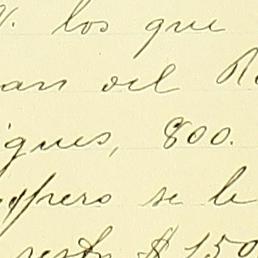 los que
an del R
igues, 800.
pero se le
resto $ 150